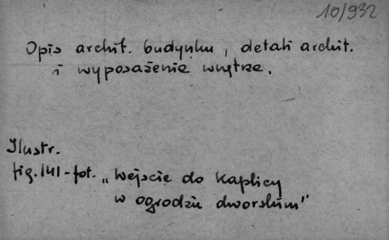 10/932
Opis archit. budynku, detali archit.
i wyposażenie wnętrz.
Ilustr.
fig. 141 - fot. „Wejście do kaplicy
w ogrodzie dworskim"